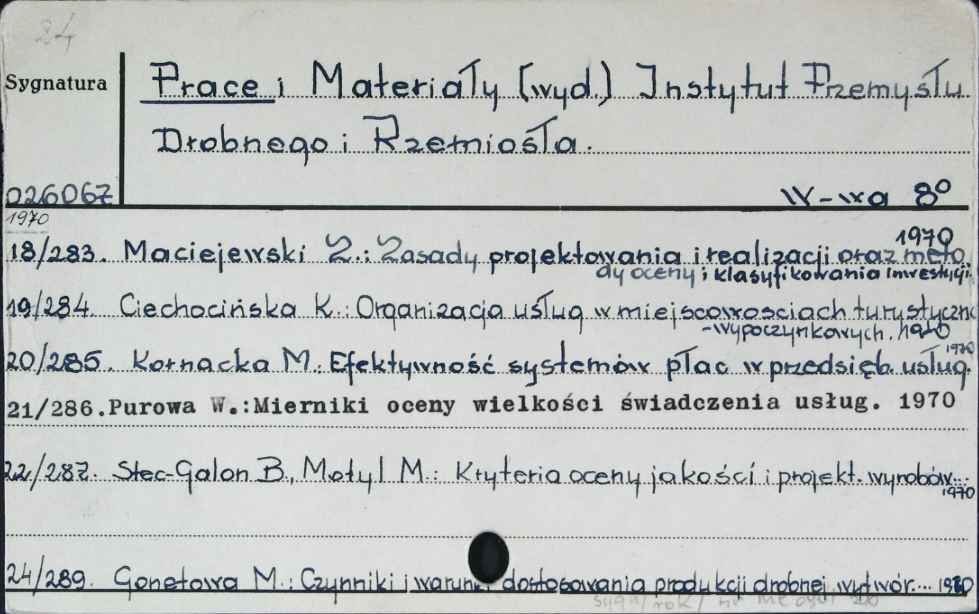 84
Sygnatura
Prace i Materiały (wyd.) Instytut Przemysłu
Drobnego i Rzemiosła.
026067
W-wa 8°
1970
18/283. Maciejewski Z.: Zasady projektowania i realizacji oraz meto 1970
dy oceny i klasyfikowania inwestycji.
19/284. Ciechocińska K.: Organizacja usług w miejscowosciach turystyczno
-wypoczynkowych. 1970
20/285. Kornacka M.: Efektywność systemów płac w przedsięb. usług. 1970
21/286. Purowa W.: Mierniki oceny wielkości świadczenia usług. 1970
22/287. Stec-Galon B., Motyl M.: Kryteria oceny jakości i projekt. wyrobów... 1970
24/289. Gonetowa M.: Czynniki i warunki dostosowania produkcji drobnej wytwór... 1970